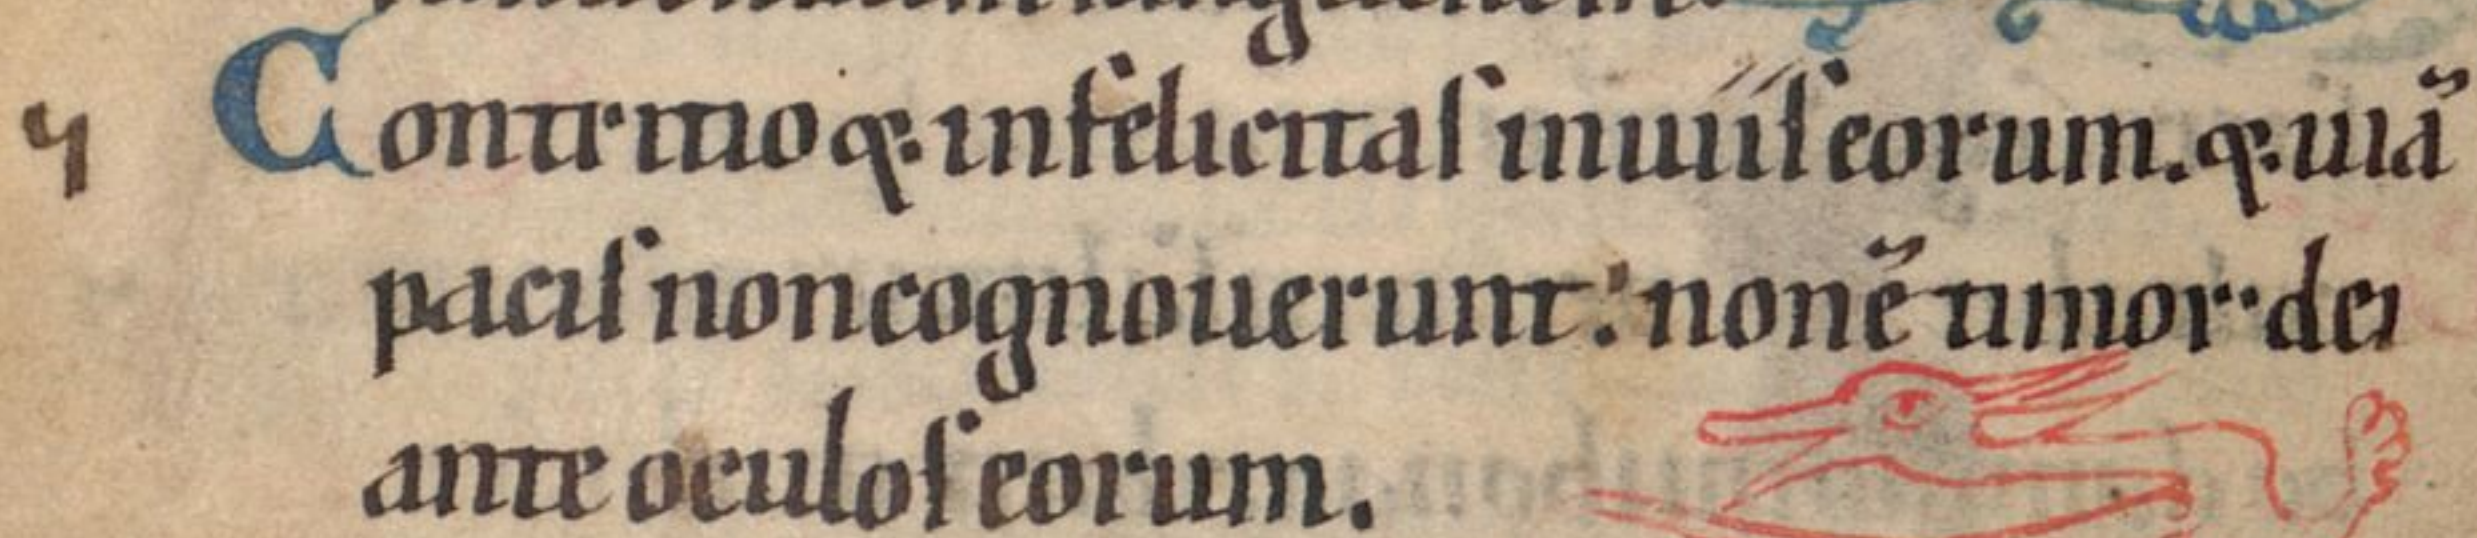 Contritio q; infelicitas inuiis eorum. q; uiã
pacis non cognouerunt: non ẽ timor dei
ante oculos eorum.